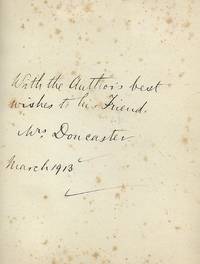 With the Author's best
wishes to his Friend.
Mrs Doncaster
March 1913